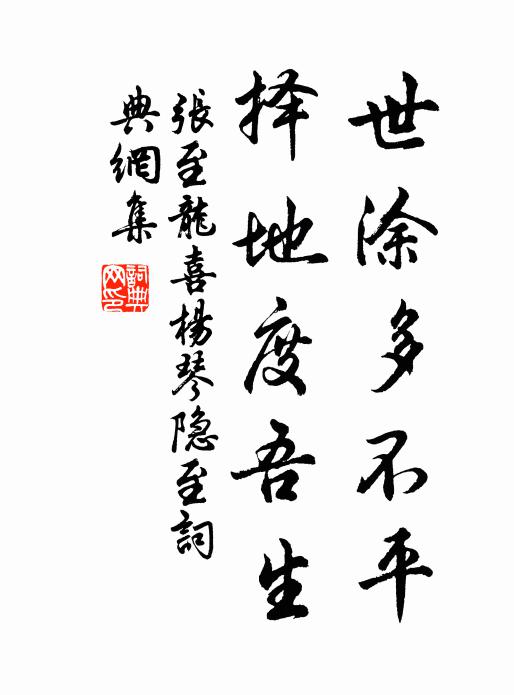 世涂多不平
择地度吾生
張至龍喜楊琴隐至詞
典網集
詞典
网印